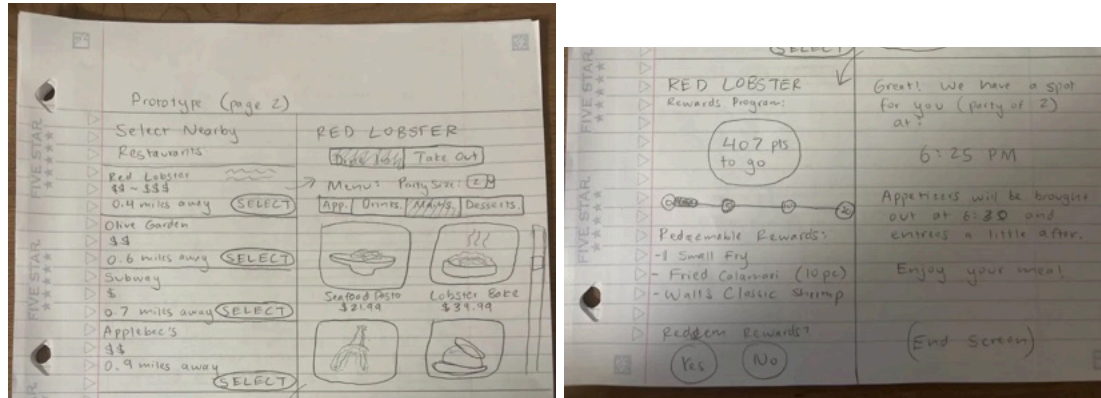 Prototype (page 2)
Select Nearby
Restaurants
Red Lobster
$$ ~ $$$
0.4 miles away SELECT
Olive Garden
$$
0.6 miles away SELECT
Subway
$
0.7 miles away SELECT
Applebee's
$$
0.9 miles away
SELECT
RED LOBSTER
Take Out
Menu: Party Size: 2
App. Drinks. Mains. Desserts.
Seafood Pasta
$21.99
Lobster Bake
$39.99
FIVE STAR
FIVE STAR
SELECT
RED LOBSTER
Rewards Program:
407 pts
to go
Redeemable Rewards:
-1 Small Fry
- Fried Calamari (10 pc)
- Walt's Classic Shrimp
Redeem Rewards?
Yes No
Great! We have a spot
for you (party of 2)
at:
6:25 PM
Appetizers will be brought
out at 6:30 and
entrees a little after.
Enjoy your meal
(End Screen)
FIVE STAR
FIVE STAR